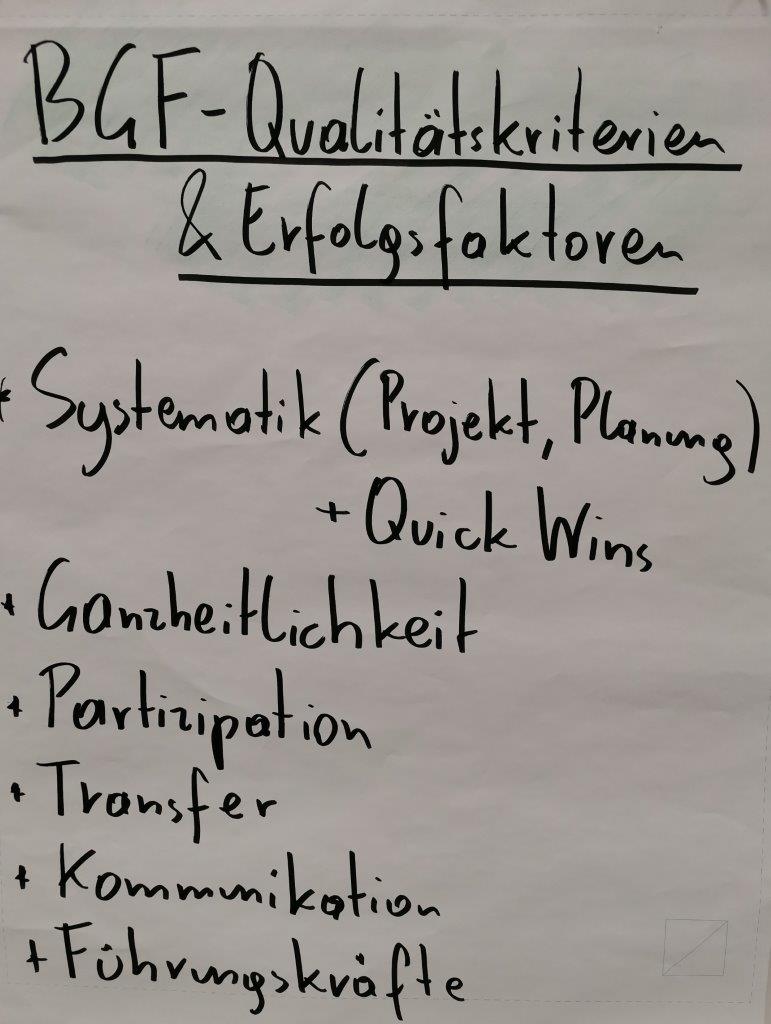 BGF-Qualitätskriterien
& Erfolgsfaktoren
* Systematik (Projekt, Planung)
+ Quick Wins
+ Ganzheitlichkeit
+ Partizipation
+ Transfer
+ Kommunikation
+ Führungskräfte